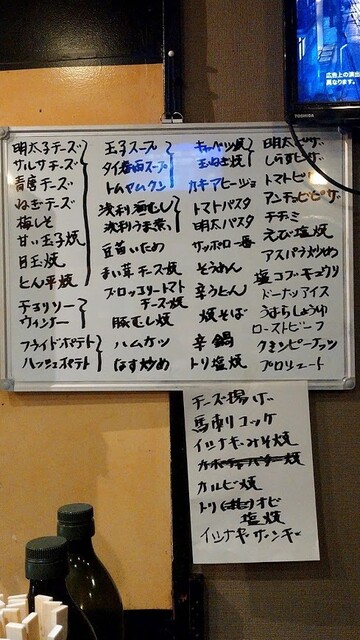 明太子チーズ
サルサチーズ
青唐チーズ
ねぎチーズ
梅しそ
甘い玉子焼
目玉焼
とん平焼
チョリソー
ウィンナー
フライドポテト
ハッシュポテト
玉子スープ
タイ春雨スープ
トムヤムクン
浅利酒むし
浅利うま煮
豆苗いため
まい茸チーズ焼
ブロッコリートマト
チーズ焼
豚むし焼
ハムカツ
はす炒め
キャベツ焼
玉ねぎ焼
カキアヒージョ
トマトパスタ
明太パスタ
サッポロ一番
そうめん
辛うどん
焼そば
辛鍋
トリ塩焼
明太ピザ
しらすピザ
トマトピザ
アンチョビピザ
チヂミ
えび塩焼
アスパラ炒め
塩コブキュウリ
ドーナツアイス
うずらしょうゆ
ローストビーフ
クミンピーナッツ
プロシュート
チーズ揚げ
馬刺ユッケ
イツナギみそ焼
カルビ焼
トリ
オビ
塩焼
広告上の演出
異なります。
TOSHIBA